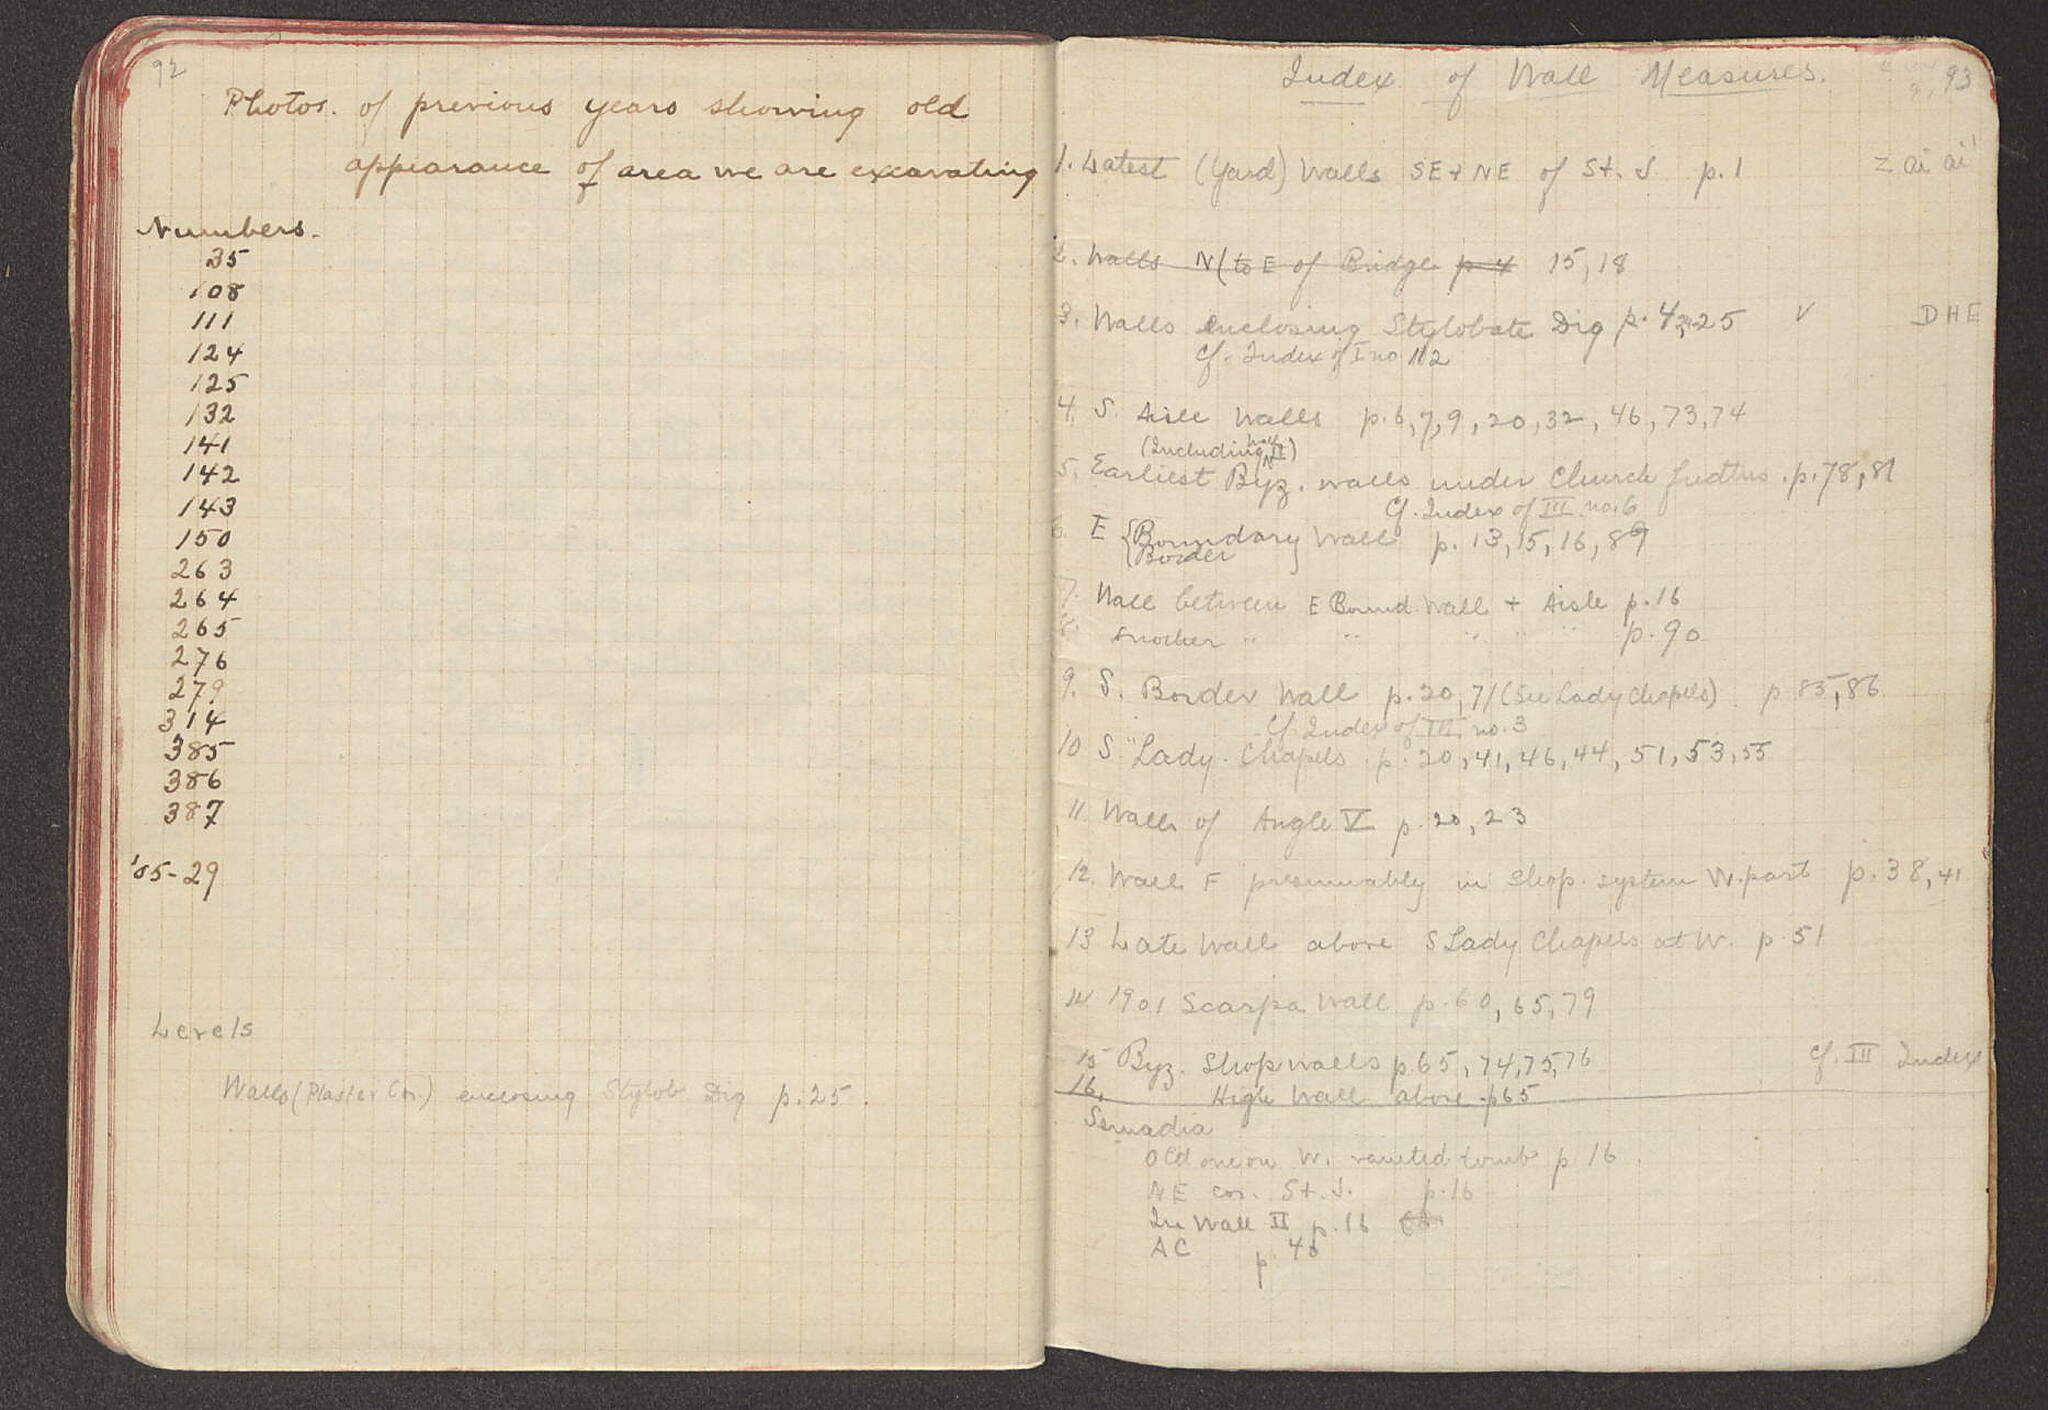 92
Photos. of previous years showing old
appearance of area we are excavating
Numbers.
35
108
111
124
125
132
141
142
143
150
263
264
265
276
279
314
385
386
387
'05-29
Levels
Walls (Plaster Cor.) enclosing Stylob Dig p. 25.
93
Index of Wall Measures.
1. Latest (Yard) Walls SE + NE of St. J. p. 1
2. Walls N (to E of Bridge p. 4 15, 18
3. Walls enclosing Stylobate Dig p. 4, 25 V DHE
Cf. Index of I no 112
4. S. Aisle Walls p. 6, 7, 9, 20, 32, 46, 73, 74
(Including Wall II)
5. Earliest Byz. walls under Church fndtns. p. 78, 81
Cf. Index of III no. 6
6. E { Boundary Wall p. 13, 15, 16, 89
{ Border
7. Wall between E Bound. Wall + Aisle p. 16
8. Another " " " " " p. 90
9. S. Border Wall p. 20, 71 (See Lady Chapels) p 85, 86
Cf Index of III no. 3
10 S. "Lady. Chapels p. 20, 41, 46, 44, 51, 53, 55
11. Walls of Angle V p. 20, 23
12. Wall F presumably in Shop. system W. part p. 38, 41
13 Late Wall above S Lady Chapels at W. p. 51
14 1901 Scarpa Wall p. 60, 65, 79
15 Byz. Shop walls p. 65, 74, 75, 76 Cf. III Index
16. High Wall above p 65
Semadia
Old one on W. vaulted tomb p 16.
NE cor. St. J. p. 16
In Wall II p. 16
AC p. 46